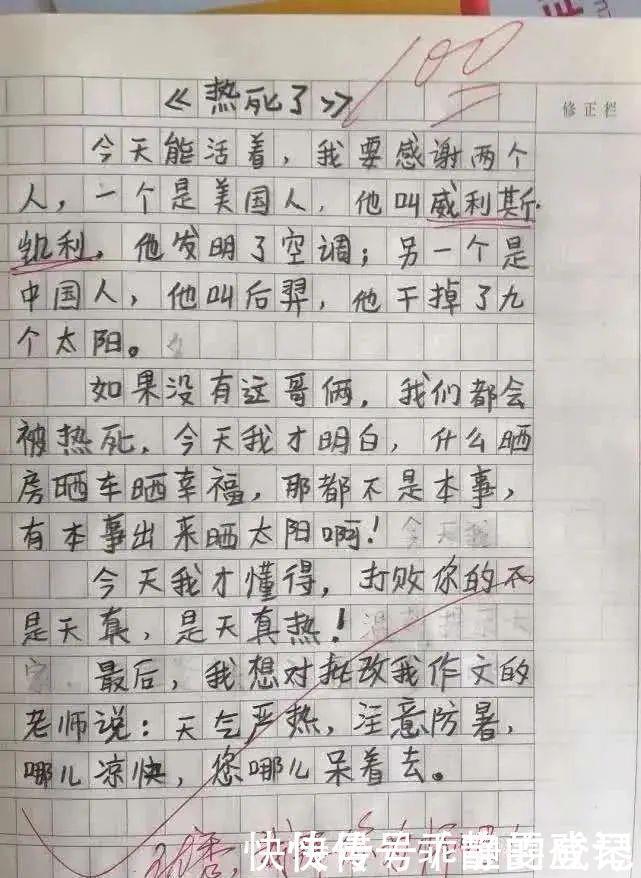 100
修正栏
《热死了》
今天能活着，我要感谢两个
人，一个是美国人，他叫威利斯·
凯利，他发明了空调；另一个是
中国人，他叫后羿，他干掉了九
个太阳。
如果没有这哥俩，我们都会
被热死，今天我才明白，什么晒
房晒车晒幸福，那都不是本事，
有本事出来晒太阳啊！
今天我才懂得，打败你的不
是天真，是天真热！
最后，我想对批改我作文的
老师说：天气严热，注意防暑，
哪儿凉快，您哪儿呆着去。
快传号